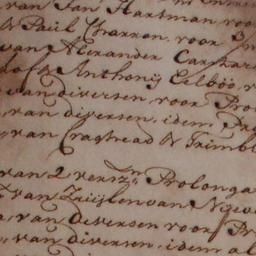 van Jan Hartman voor
& Paul Charron, voor 3/
van Alexander Carhar
Anthonij Lelboo v
van diversen voor Pro
van diversen, idem, Pro
van Craghead & Trimbl
van 2 versz:n Prolonga
van Zuijlen van Nijeve
van Diversen voor Pr
van diversen, idem al